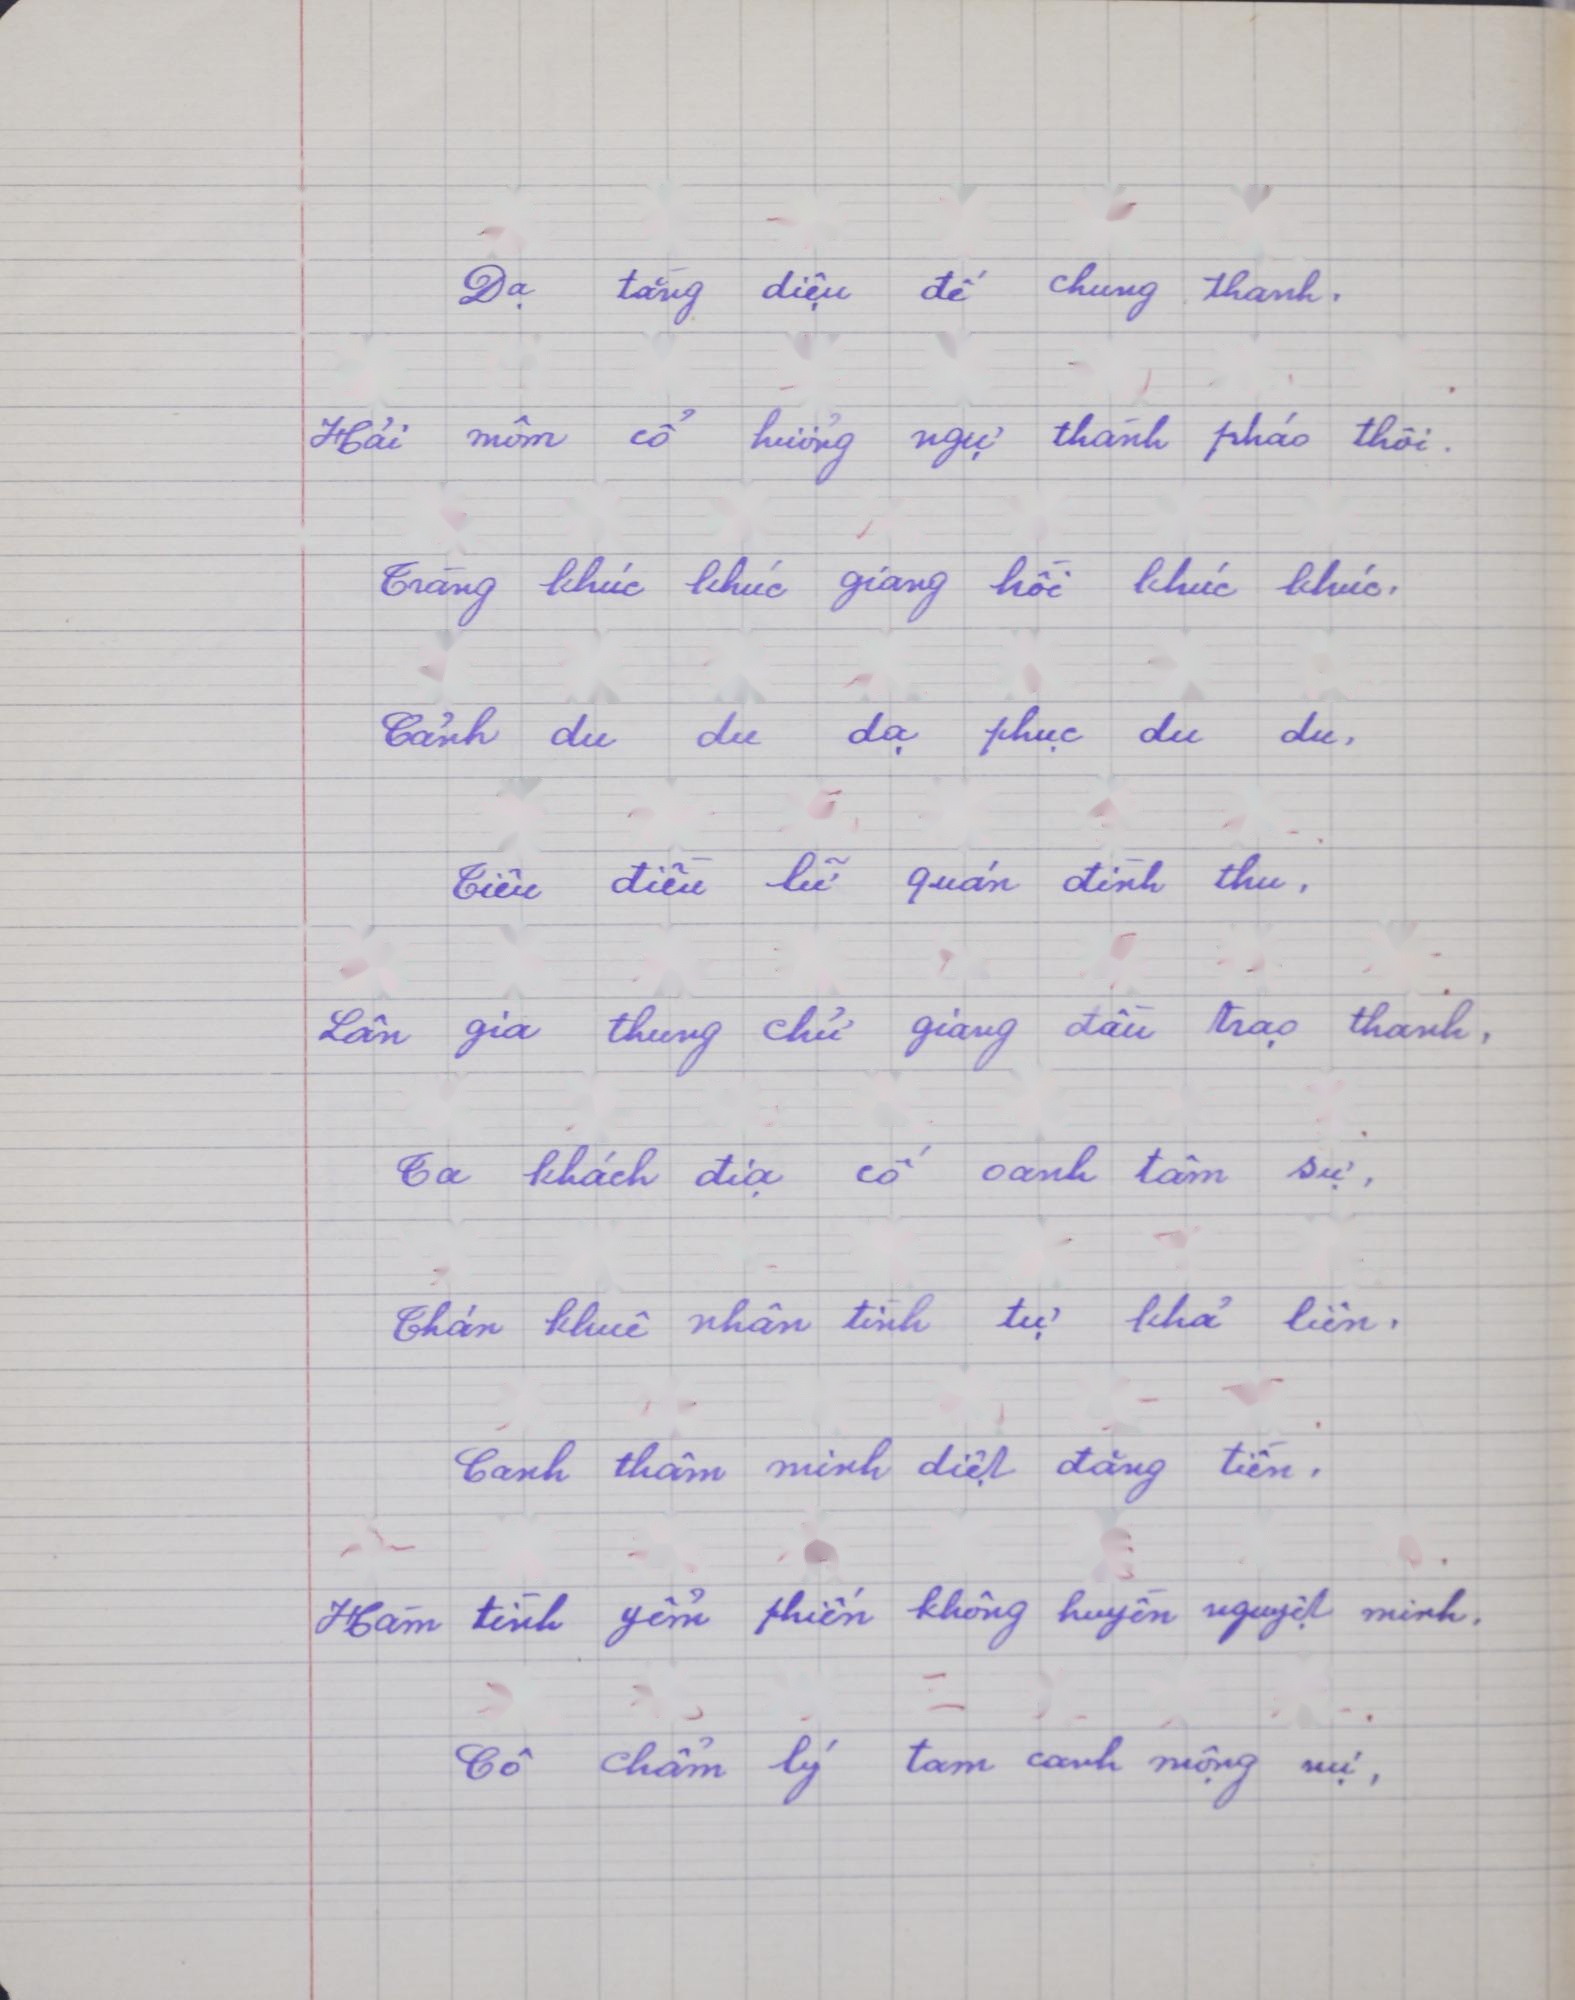 Dạ tằng diệu đế chung thanh.
Hải môm cổ hưởng ngự thành pháo thôi.
Tràng khúc khúc giang hồi khúc khúc.
Cảnh du du dạ phục du du.
Tiêu điều lữ quán đình thu.
Lân gia thung chử giang đầu trạo thanh.
Ta khách địa cố oanh tâm sự.
Thán khuê nhân tình tự khả liên.
Canh thâm minh diệt đăng tiền.
Hàm tình yểm phiến không huyền nguyệt minh.
Cô chẩm lý tam canh mộng nự,